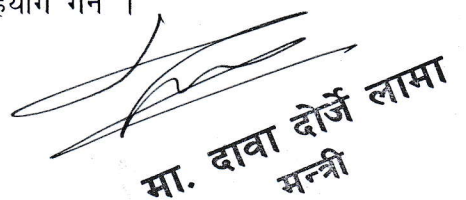 गर्ने ।
मा. दावा दोर्जे लामा
मन्त्री